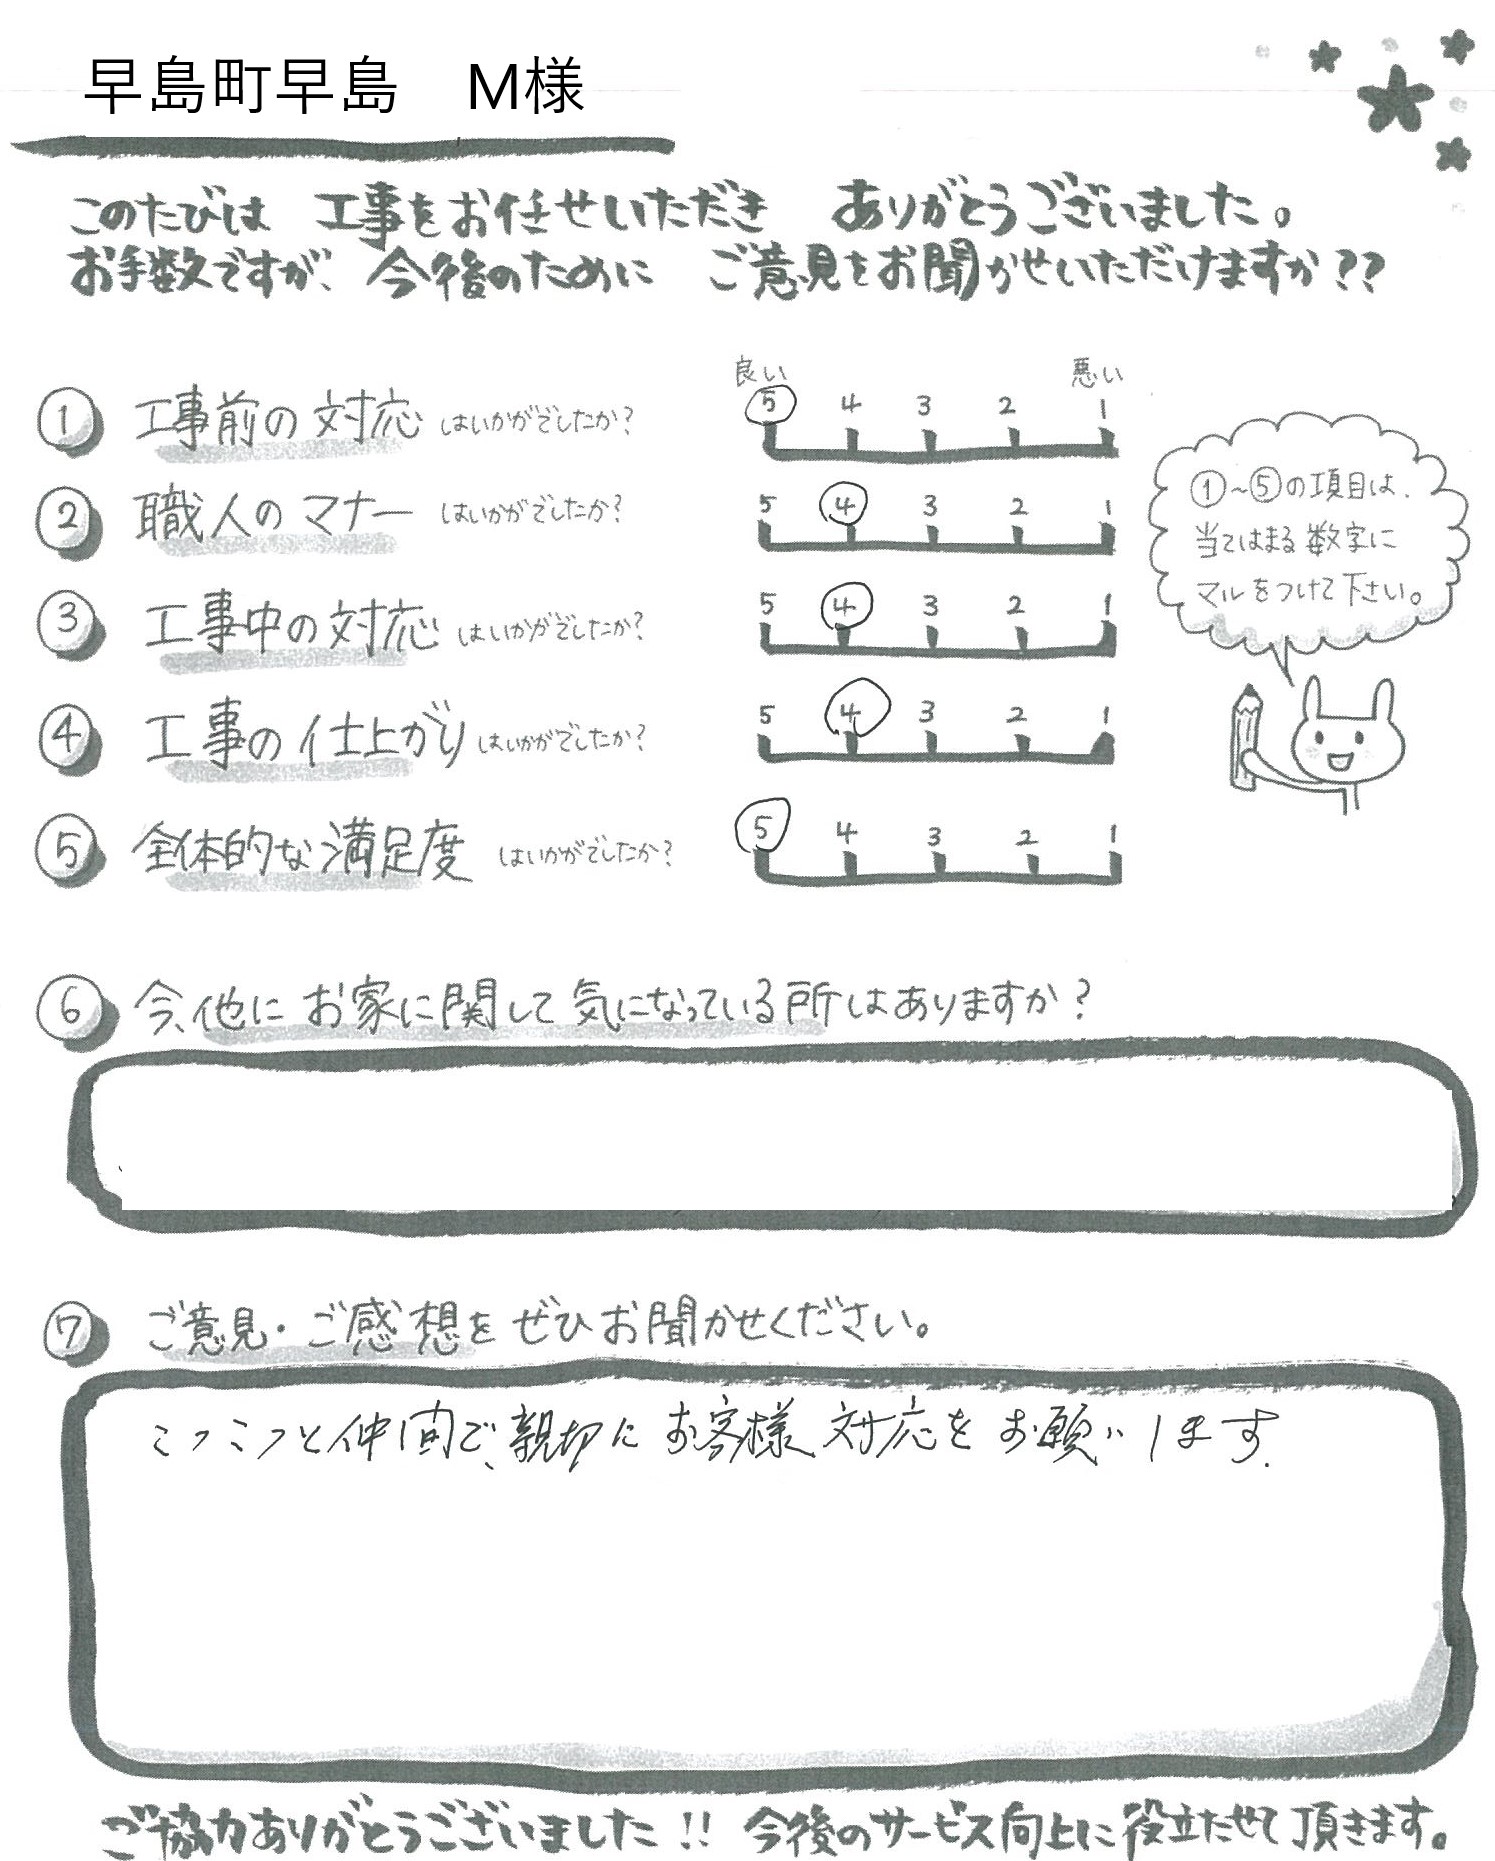 早島町早島　M様
このたびは 工事をお任せいただき ありがとうございました。
お手数ですが、今後のために ご意見をお聞かせいただけますか??
良い 悪い
① 工事前の対応 はいかがでしたか? 5 4 3 2 1
② 職人のマナー はいかがでしたか? 5 4 3 2 1
③ 工事中の対応 はいかがでしたか? 5 4 3 2 1
④ 工事の仕上がり はいかがでしたか? 5 4 3 2 1
⑤ 全体的な満足度 はいかがでしたか? 5 4 3 2 1
①~⑤の項目は、
当てはまる数字に
マルをつけて下さい。
⑥ 今、他にお家に関して気になっている所はありますか?
⑦ ご意見・ご感想をぜひお聞かせください。
こつこつと仲間で、親切にお客様対応をお願いします.
ご協力ありがとうございました!! 今後のサービス向上に役立たせて頂きます。